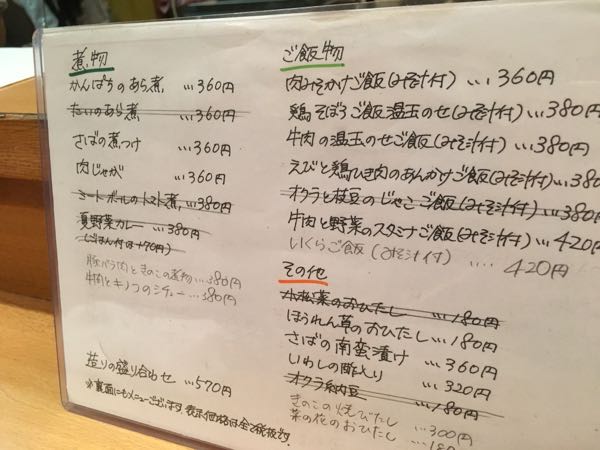 煮物
かんぱちのあら煮 …360円
たいのあら煮 …360円
さばの煮つけ …360円
肉じゃが …360円
ミートボールのトマト煮 …380円
夏野菜カレー …380円
(ごはん付は+70円)
豚バラ肉ときのこの煮物 …380円
牛肉とキノコのシチュー …380円
造りの盛り合わせ …570円
※裏面にもメニューございます 表示価格は全て税抜です
ご飯物
肉みそかけご飯(みそ汁付) …360円
鶏そぼろご飯温玉のせ(みそ汁付) …380円
牛肉の温玉のせご飯(みそ汁付) …380円
えびと鶏ひき肉のあんかけご飯(みそ汁付) …380
オクラと枝豆のじゃこご飯(みそ汁付) …380
牛肉と野菜のスタミナご飯(みそ汁付) …420
いくらご飯(みそ汁付) ….420円
その他
小松菜のおひたし …180円
ほうれん草のおひたし …180円
さばの南蛮漬け …360円
いわしの酢〆り …320円
オクラ納豆 …180円
きのこの焼びたし …300円
菜の花のおひたし …180